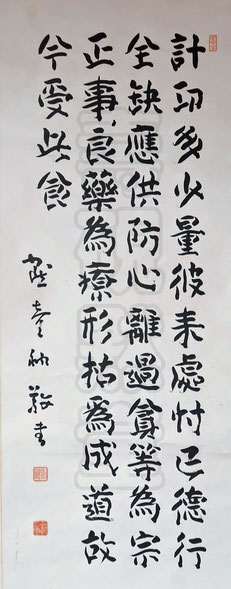 計功多少量彼来處忖己德行
全缺應供防心離過貪等為宗
正事良藥為療形枯為成道故
今受此食
敬書